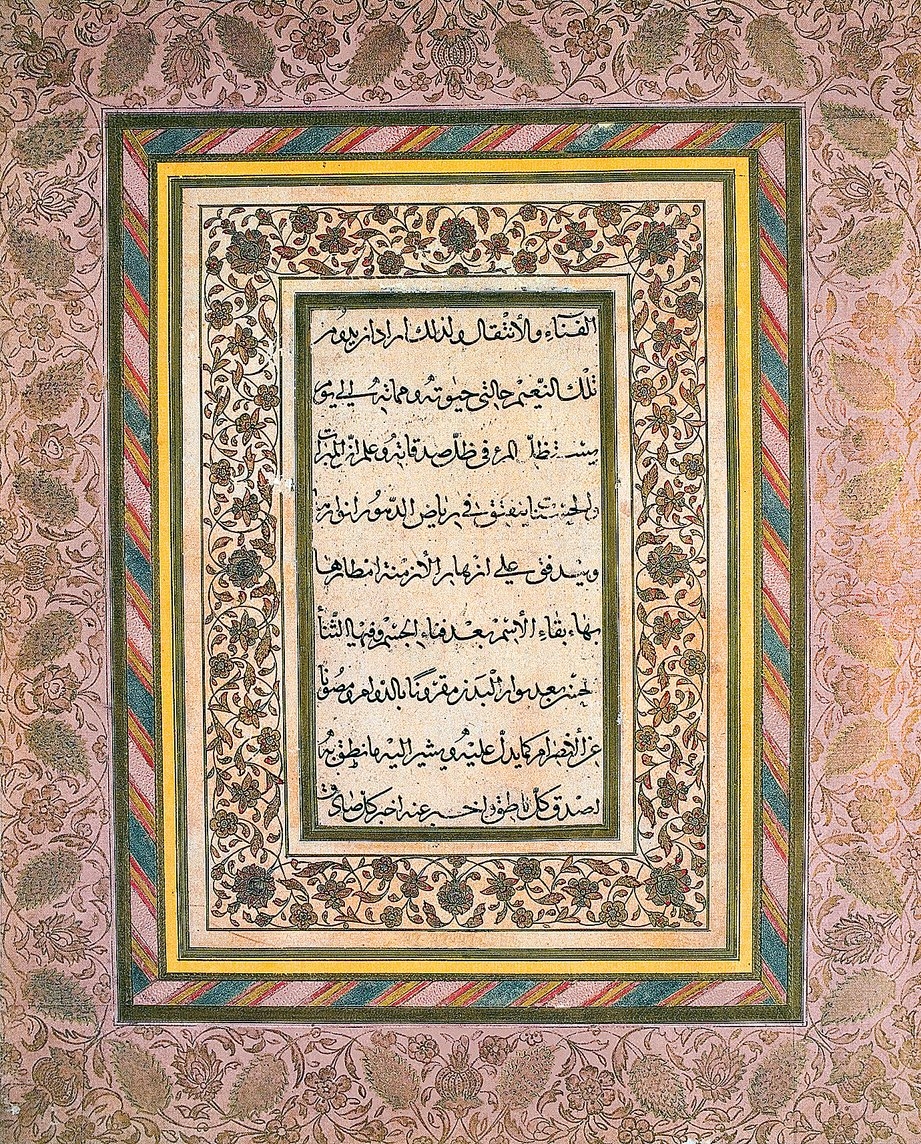 الفنآءِ والأنتقال ولذلك اراد ان يدوم
تلك النّعيم حالتي حيٰوته ومماته لي يوم
يستظلّ المرء في ظلّ صدقاته وعلم انّ المبرّات
والحسنات ينفتق في رياض الدّهور انوارها
ويتدفق علي انهار الأزمنة امطارها
بهاء بقاءِ الأسْم بعد فناء الجسْم وفيها الثنأ
بعد بوار البدن مقرونًا بالدّوام مصُونًا
عن الأنصرام كما يدلّ عليْه ويشير اليْه ما نطق بهُ
اصدق كلّ ناطق واخبر عنه اخبر كل صادق